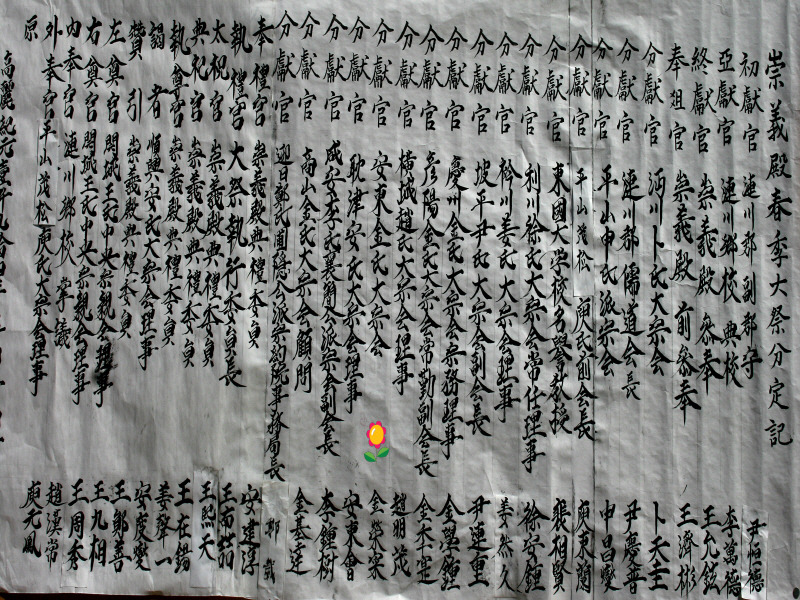 崇義殿春季大祭分定記
初獻官 漣川郡副郡守 尹恒德
亞獻官 漣川鄕校典校 李萬德
終獻官 崇義殿參奉 王允鉉
奉俎官 崇義殿前參奉 王濟彬
分獻官 沔川卜氏大宗会 卜天圭
分獻官 漣川郡儒道会長 尹悳普
分獻官 平山申氏派宗会 申昌燮
分獻官 平山茂松庾氏前会長 庾東蘭
分獻官 東國大学校名譽敎授 裵相賢
分獻官 利川徐氏大宗会常任理事 徐安鍾
分獻官 衿川姜氏大宗会理事 姜然久
分獻官 坡平尹氏大宗会副会長 尹連重
分獻官 慶州金氏大宗会宗務理事 金學鍾
分獻官 彦陽金氏大宗会常勤副会長
分獻官 橫城趙氏大宗会理事 趙明茂
分獻官 安東金氏大宗会 金榮
分獻官 耽津安氏大宗会理事 安東會
分獻官 咸安李氏襄簡公派宗会副会長 李鍾樹
分獻官 商山金氏大宗会顧問 金基達
分獻官 迎日鄭氏圃隱公派宗約院事務局長 鄭
奉禮官 崇義殿典禮委員 安建淳
執禮官 大祭執行委員長 王
太祝官 崇義殿典禮委員 王熙天
典祀官 崇義殿典禮委員 王在錫
執尊官 崇義殿典禮委員 姜聲一
謁者 順興安氏大宗会理事 安慶燮
贊引 崇義殿典禮委員 王鄕善
左奠官 開城王氏中央宗親会理事 王九相
右奠官 開城王氏中央宗親会理事 王周秀
內奉官 漣川鄕校掌議 趙漢常
外奉官 平山茂松庾氏大宗会理事 庾元鳳
京
高麗紀元